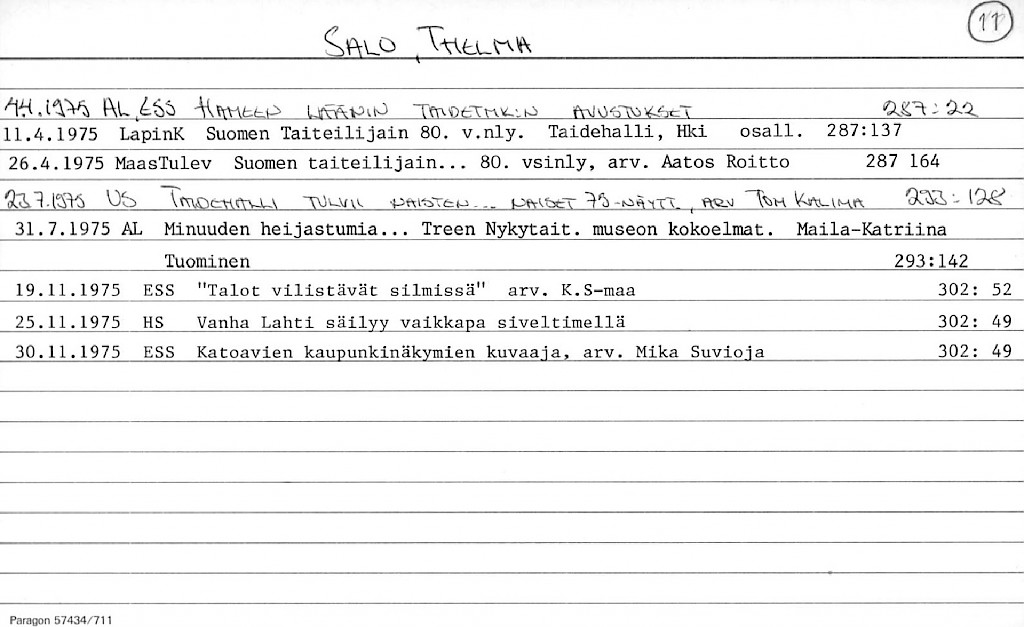 11
SALO, THELMA
4.4.1975 AL, ESS HÄMEEN LÄÄNIN TAIDETMK:N AVUSTUKSET 287:22
11.4.1975 LapinK Suomen Taiteilijain 80. v.nly. Taidehalli, Hki osall. 287:137
26.4.1975 MaasTulev Suomen taiteilijain... 80. vsinly, arv. Aatos Roitto 287 164
23.7.1975 US TAIDEHALLI TULVII NAISTEN... NAISET 75-NÄYTT., ARV TOM KALIMA 293:128
31.7.1975 AL Minuuden heijastumia... Treen Nykytait. museon kokoelmat. Maila-Katriina
Tuominen 293:142
19.11.1975 ESS "Talot vilistävät silmissä" arv. K.S-maa 302: 52
25.11.1975 HS Vanha Lahti säilyy vaikkapa siveltimellä 302: 49
30.11.1975 ESS Katoavien kaupunkinäkymien kuvaaja, arv. Mika Suvioja 302: 49
Paragon 57434/711